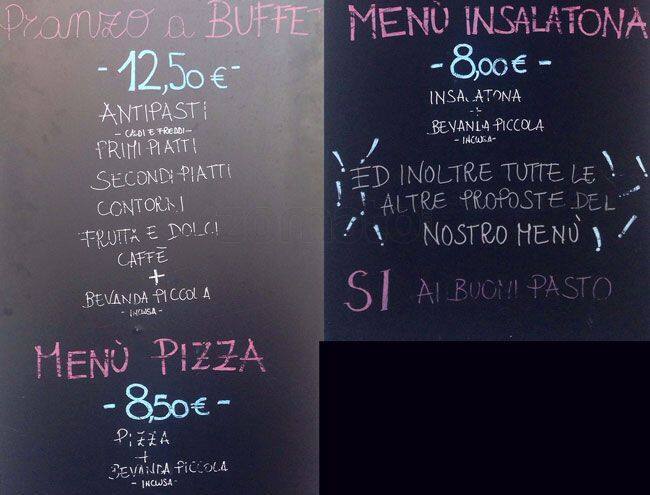 Pranzo a BUFFET
- 12,50 € -
ANTIPASTI
- CALDI E FREDDI -
PRIMI PIATTI
SECONDI PIATTI
CONTORNI
FRUTTA E DOLCI
CAFFÈ
+
BEVANDA PICCOLA
- INCLUSA -
MENÙ PIZZA
- 8,50 € -
PIZZA
+
BEVANDA PICCOLA
- INCLUSA -
MENÙ INSALATONA
- 8,00 € -
INSALATONA
+
BEVANDA PICCOLA
- INCLUSA -
ED INOLTRE TUTTE LE
ALTRE PROPOSTE DEL
NOSTRO MENÙ
SI AI BUONI PASTO